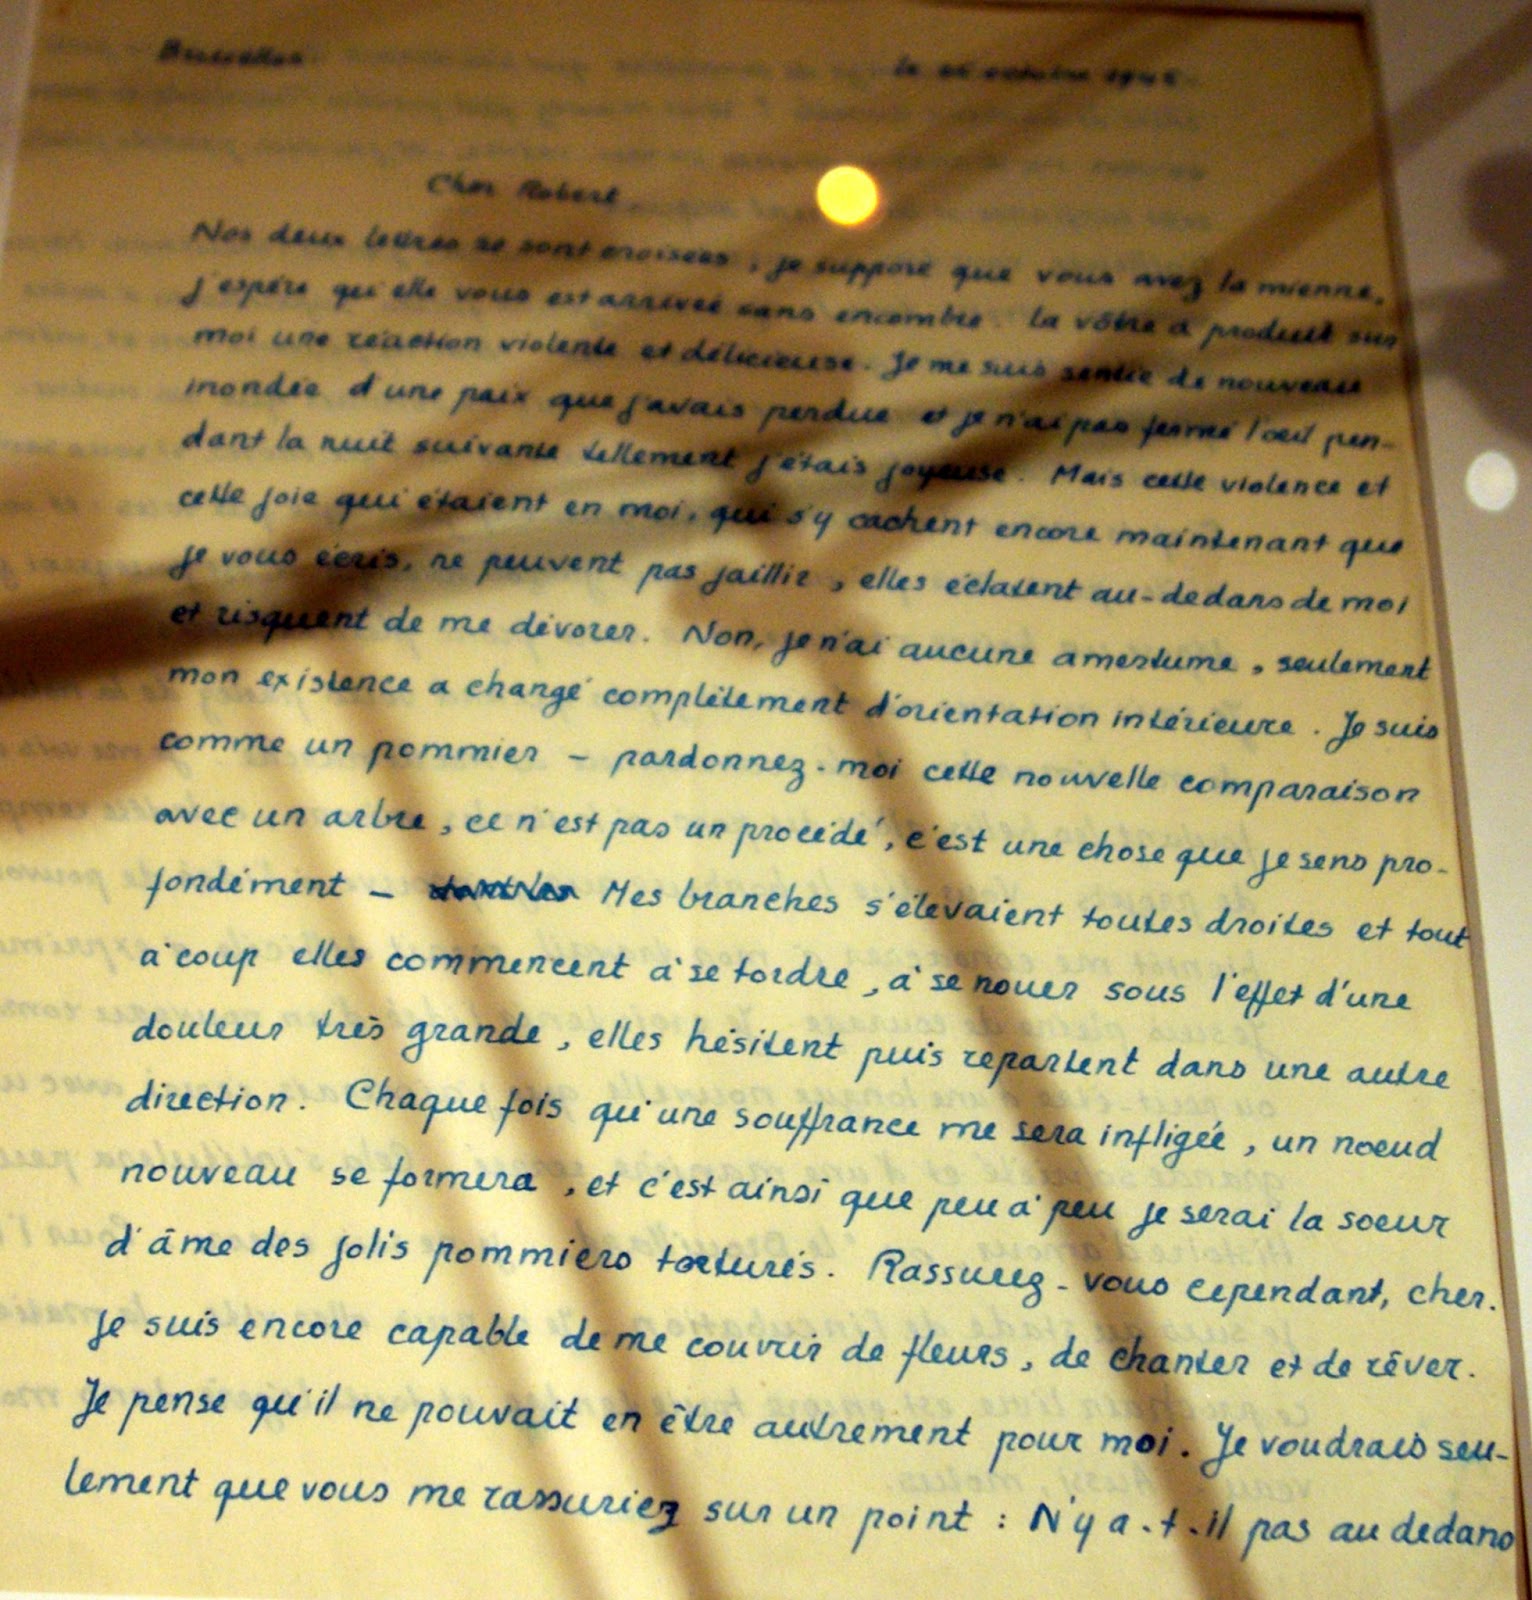 Bruxelles le octobre 194
Cher Robert,
Nos deux lettres se sont croisées, je suppose que vous avez la mienne,
j'espère qu'elle vous est arrivée sans encombre. La vôtre a produit sur
moi une réaction violente et délicieuse. Je me suis sentie de nouveau
inondée d'une paix que j'avais perdue et je n'ai pas fermé l'oeil pen-
dant la nuit suivante tellement j'étais joyeuse. Mais cette violence et
cette joie qui étaient en moi, qui s'y cachent encore maintenant que
je vous écris, ne peuvent pas jaillir, elles éclatent au-dedans de moi
et risquent de me dévorer. Non, je n'ai aucune amertume, seulement
mon existence a changé complètement d'orientation intérieure. Je suis
comme un pommier - pardonnez-moi cette nouvelle comparaison
avec un arbre, ce n'est pas un procédé, c'est une chose que je sens pro-
fondément - Mes branches s'élevaient toutes droites et tout
à coup elles commencent à se tordre, à se nouer sous l'effet d'une
douleur très grande, elles hésitent puis repartent dans une autre
direction. Chaque fois qu'une souffrance me sera infligée, un noeud
nouveau se formera, et c'est ainsi que peu à peu je serai la soeur
d'âme des jolis pommiers torturés. Rassurez-vous cependant, cher.
Je suis encore capable de me couvrir de fleurs, de chanter et de rêver.
Je pense qu'il ne pouvait en être autrement pour moi. Je voudrais seu-
lement que vous me rassuriez sur un point : N'y a-t-il pas au dedans